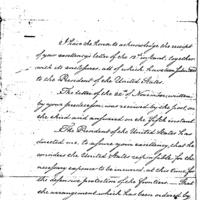 I have the honor to acknowledge the receipt
of your excellency's letter of the 12th instant, together
with its enclosures, all of which have been
to the President of the United States.
The letter of the 21st of November written
by your predecessor, was received by the post, on
the third and answered on the fifth instant.
The President of the United States has
directed me, to assure your excellency, that he
considers the United States responsible for the
necessary expence to be incured, at this time, for
the defensive protection of the frontiers. That
the arrangement which has been ordered by